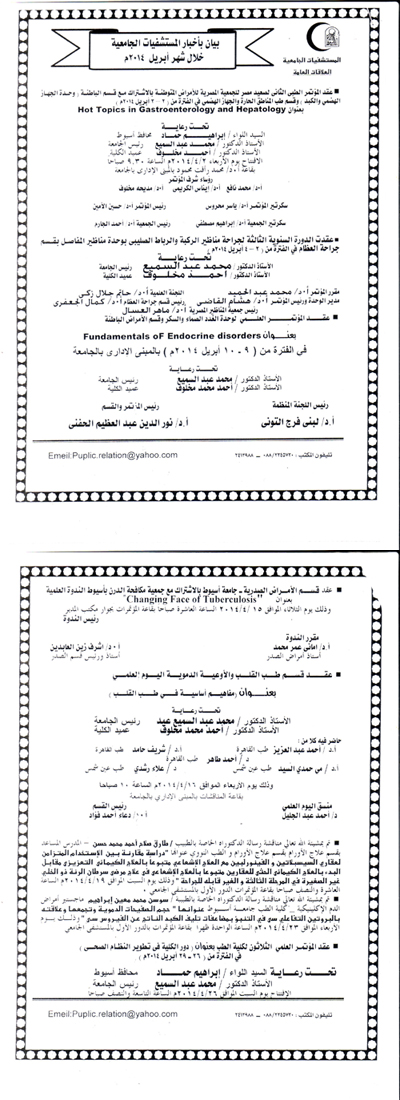 المستشفيات الجامعية
العلاقات العامة
بيان بأخبار المستشفيات الجامعية
خلال شهر أبريل ٢٠١٤م
■ عقد المؤتمر الطبى الثانى لصعيد مصر للجمعية المصرية للأمراض المتوطنة بالاشتراك مع قسم الباطنة ( وحدة الجهاز
الهضمي والكبد ) وقسم طب المناطق الحارة والجهاز الهضمي فى الفترة من ( ٢ - ٣ أبريل ٢٠١٤م )
بعنوان Hot Topics in Gastroenterology and Hepatology
تحت رعاية
السيد اللواء / إبراهيم حماد محافظ أسيوط
الأستاذ الدكتور / محمد عبد السميع رئيس الجامعة
الأستاذ الدكتور / أحمد مخلوف عميد الكلية
الافتتاح يوم الأربعاء ٢٠١٤/٤/٢م الساعة ٩,٣٠ صباحا
بقاعة أ.د/ محمد رأفت محمود بالمبنى الإدارى بالجامعة
رؤساء شرف المؤتمر
أ.د/ محمد نافع أ.د/ ايناس الكريمي أ.د/ مديحه مخلوف
سكرتير المؤتمر أ.د/ ياسر محروس رئيس المؤتمر أ.د/ حسين الأمين
سكرتير الجمعية أ.د/ إبراهيم مصطفى رئيس الجمعية أ.د/ أحمد الجارم
■ عقدت الدورة السنوية الثالثة لجراحة مناظير الركبة والرباط الصليبى بوحدة مناظير المفاصل بقسم
جراحة العظام فى الفترة من ( ٢ - ٤ أبريل ٢٠١٤م )
تحت رعاية
الأستاذ الدكتور / محمد عبد السميع رئيس الجامعة
الأستاذ الدكتور / أحمد مخلوف عميد الكلية
مقرر المؤتمر أ.د/ محمد عبد الحميد اللجنة العلمية أ.د/ حاتم جلال زكى
مدير الوحدة ورئيس المؤتمر أ.د/ هشام القاضى رئيس قسم جراحة العظام أ.د/ كمال الجعفرى
رئيس جمعية المناظير المصرية أ.د/ ماهر العسال
■ عقد المؤتمر العلمى لوحدة الغدد الصماء والسكر وقسم الأمراض الباطنة
بعنوان Fundamentals of Endocrine disorders
فى الفترة من ( ٩ - ١٠ أبريل ٢٠١٤م ) بالمبنى الإدارى بالجامعة
تحت رعاية
الأستاذ الدكتور / محمد عبد السميع رئيس الجامعة
الأستاذ الدكتور / أحمد محمد مخلوف عميد الكلية
رئيس اللجنة المنظمة رئيس المؤتمر والقسم
أ.د/ لبنى فرج التونى أ.د/ نور الدين عبد العظيم الحفنى
Emeil:Puplic.relation@yahoo.com
■ عقد قسم الأمراض الصدرية - جامعة أسيوط بالاشتراك مع جمعية مكافحة الدرن بأسيوط الندوة العلمية
بعنوان "Changing Face of Tuberculosis"
وذلك يوم الثلاثاء الموافق ٢٠١٤/٤/١٥ الساعة العاشرة صباحا بقاعة المؤتمرات بجوار مكتب المدير
رئيس الندوة
مقرر الندوة
أ.د/ أمانى عمر محمد أ.د/ أشرف زين العابدين
أستاذ أمراض الصدر أستاذ ورئيس قسم الصدر
■ عقد قسم طب القلب والأوعية الدموية اليوم العلمي
بعنوان (مفاهيم أساسية فى طب القلب )
تحت رعاية
الأستاذ الدكتور / محمد عبد السميع عيد رئيس الجامعة
الأستاذ الدكتور / أحمد محمد مخلوف عميد الكلية
حاضر فيه كلا من :
أ.د/ أحمد عبد العزيز طب القاهرة أ.د/ شريف حامد طب القاهرة
أ.د/ أحمد طاهر طب القاهرة
أ.د/ مى حمدى السيد طب عين شمس د/ علاء رشدى طب عين شمس
وذلك يوم الأربعاء الموافق ٢٠١٤/٤/١٦م الساعة ١٠ صباحا
بقاعة المناقشات بالمبنى الإدارى بالجامعة
منسق اليوم العلمي رئيس القسم
د/ أحمد عبد الجليل أ.د/ دعاء أحمد فؤاد
■ تم بمشيئة الله تعالى مناقشة رسالة الدكتوراه الخاصة بالطبيب / طارق صلاح أحمد محمد حسن - المدرس المساعد
بقسم علاج الأورام بقسم علاج الأورام و الطب النووى عنوانها "دراسة مقارنة بين الإستخدام المتزامن
لعقارى السيسبلاتين و الفينورلبين مع العلاج الإشعاعي متبوعا بالعلاج الكيمائي التعزيزى مقابل
البدء بالعلاج الكيمائي المبدئى للعقارين متبوعا بالعلاج الإشعاعي فى علاج مرضى سرطان الرئة ذو الخلاي
غير الصغيرة فى المرحلة الثالثة و الغير قابلة للجراحة " وذلك يوم السبت الموافق ٢٠١٤/٤/١٩م الساعة
العاشرة والنصف صباحا بقاعة المؤتمرات الدور الأول بالمستشفى الجامعي .
■ تم بمشيئة الله تعالى مناقشة رسالة الدكتوراه الخاصة بالطبيبة / سوسن محمد معين إبراهيم ماجستير أمراض
بالبروتين التفاعلي سى فى التنبؤ بمضاعفات تليف الكبد الناتج عن الفيروس سى " وذلك يوم
الأربعاء الموافق ٢٠١٤/٤/٢٣م الساعة الواحدة ظهرا بقاعة المؤتمرات بالدور الأول بالمستشفى الجامعي .
■ عقد المؤتمر العلمى الثلاثون لكلية الطب بعنوان ( دور الكلية فى تطوير النظام الصحى )
فى الفترة من ( ٢٦ - ٢٩ أبريل ٢٠١٤م )
تحت رعاية السيد اللواء / إبراهيم حماد محافظ أسيوط
الأستاذ الدكتور / محمد عبد السميع رئيس الجامعة
الإفتتاح يوم السبت الموافق ٢٠١٤/٤/٢٦م الساعة التاسعة والنصف صباحا
Emeil:Puplic.relation@yahoo.com